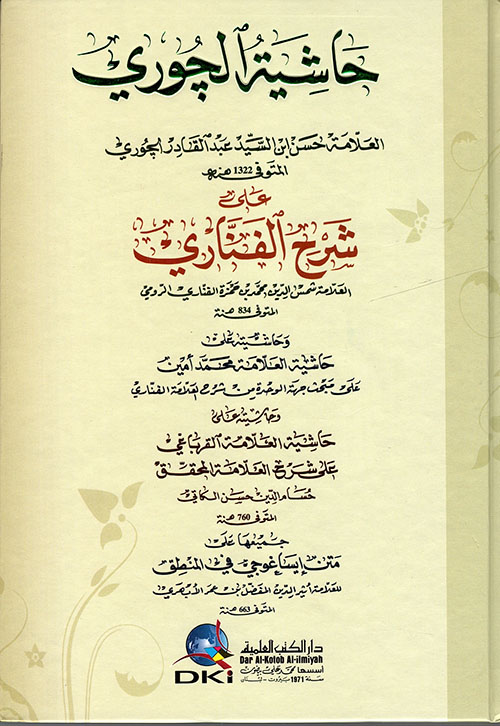 حاشية الچوري
العلامة حسن ابن السيد عبد القادر الچوري
المتوفى 1322 هـ
على
شرح الفناري
العلامة شمس الدين محمد بن حمزة الفناري الرومي
المتوفى 834 هـنة
وحاشيته على
حاشية العلامة محمد أمين
على مبحث جهة الوحدة من شرح العلامة الفناري
وحاشيته على
حاشية العلامة القرباغي
على شرح العلامة المحقق
حسام الدين حسن الكاتي
المتوفى 760 هـنة
جميعها على
متن إيساغوجي في المنطق
للعلامة أثير الدين المفضل بن عمر الأبهري
المتوفى 663 هـنة
دار الكتب العلمية
Dar Al-Kotob Al-ilmiyah
أسسها محمد علي بيضون
سنة 1971 بيروت - لبنان
DKi